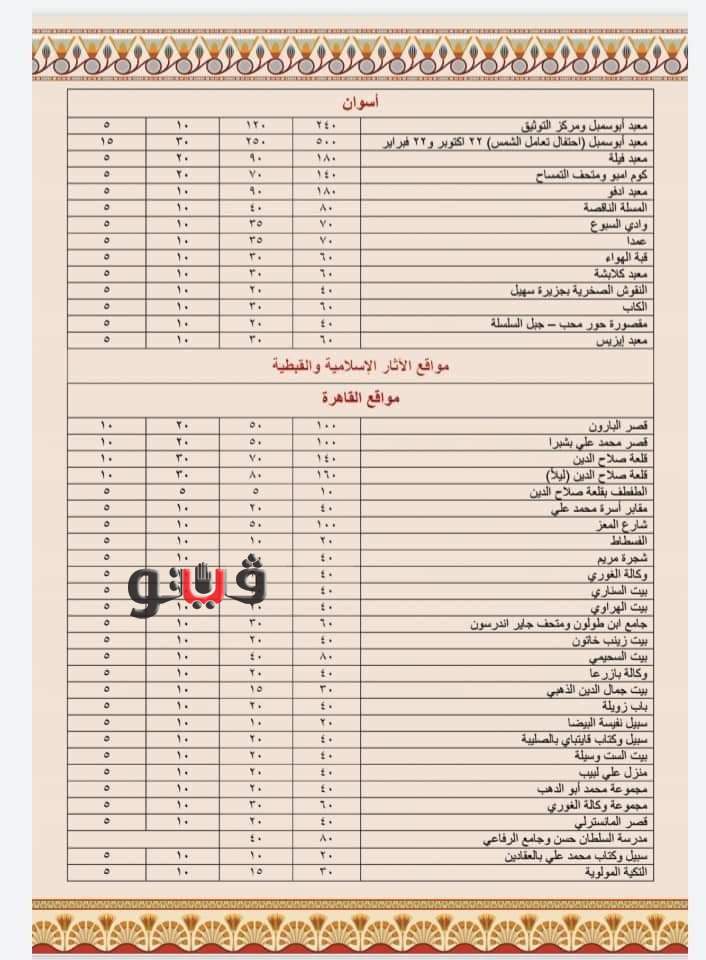 أسوان
معبد أبوسمبل ومركز التوثيق ٢٤٠ ١٢٠ ١٠ ٥
معبد أبوسمبل (احتفال تعامل الشمس) ٢٢ اكتوبر و٢٢ فبراير ٥٠٠ ٢٥٠ ٣٠ ١٥
معبد فيلة ١٨٠ ٩٠ ٢٠ ٥
كوم امبو ومتحف التمساح ١٤٠ ٧٠ ٢٠ ٥
معبد ادفو ١٨٠ ٩٠ ١٠ ٥
المسلة الناقصة ٨٠ ٤٠ ١٠ ٥
وادي السبوع ٧٠ ٣٥ ١٠ ٥
عمدا ٧٠ ٣٥ ١٠ ٥
قبة الهواء ٦٠ ٣٠ ١٠ ٥
معبد كلابشة ٦٠ ٣٠ ١٠ ٥
النقوش الصخرية بجزيرة سهيل ٤٠ ٢٠ ١٠ ٥
الكاب ٦٠ ٣٠ ١٠ ٥
مقصورة حور محب – جبل السلسلة ٤٠ ٢٠ ١٠ ٥
معبد إيزيس ٦٠ ٣٠ ١٠ ٥
مواقع الآثار الإسلامية والقبطية
مواقع القاهرة
قصر البارون ١٠٠ ٥٠ ٢٠ ١٠
قصر محمد علي بشبرا ١٠٠ ٥٠ ٢٠ ١٠
قلعة صلاح الدين ١٤٠ ٧٠ ٣٠ ١٠
قلعة صلاح الدين (ليلاً) ١٦٠ ٨٠ ٣٠ ١٠
الطفطف بقلعة صلاح الدين ١٠ ٥ ٥ ٥
مقابر أسرة محمد علي ٤٠ ٢٠ ١٠ ٥
شارع المعز ١٠٠ ٥٠ ١٠ ٥
الفسطاط ٢٠ ١٠ ١٠ ٥
شجرة مريم ٤٠ ١٠ ٥
وكالة الغوري ٤٠ ٥
بيت السناري ٤٠ ٥
بيت الهراوي ٤٠ ١٠ ٥
جامع ابن طولون ومتحف جاير اندرسون ٦٠ ٣٠ ١٠ ٥
بيت زينب خاتون ٤٠ ٢٠ ١٠ ٥
بيت السحيمي ٨٠ ٤٠ ١٠ ٥
وكالة بازرعا ٤٠ ٢٠ ١٠ ٥
بيت جمال الدين الذهبي ٣٠ ١٥ ١٠ ٥
باب زويلة ٤٠ ٢٠ ١٠ ٥
سبيل نفيسة البيضا ٢٠ ١٠ ١٠ ٥
سبيل وكتاب قايتباي بالصليبة ٤٠ ٢٠ ١٠ ٥
بيت الست وسيلة ٤٠ ٢٠ ١٠ ٥
منزل علي لبيب ٤٠ ٢٠ ١٠ ٥
مجموعة محمد أبو الدهب ٤٠ ٢٠ ١٠ ٥
مجموعة وكالة الغوري ٦٠ ٣٠ ١٠ ٥
قصر المانسترلي ٤٠ ٢٠ ١٠ ٥
مدرسة السلطان حسن وجامع الرفاعي ٨٠ ٤٠
سبيل وكتاب محمد علي بالعقادين ٢٠ ١٠ ١٠ ٥
التكية المولوية ٣٠ ١٥ ١٠ ٥
ڤيتو